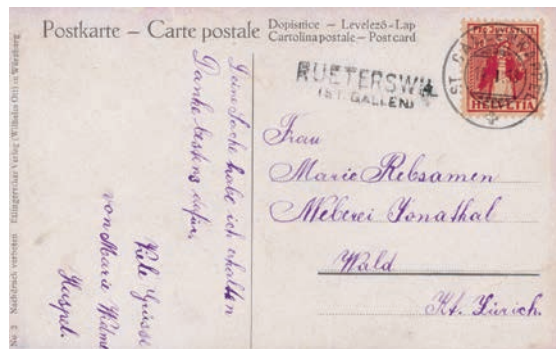 Postkarte – Carte postale
Dopisnice – Levelező-Lap
Cartolina postale – Post card
RUETERSWIL
(ST. GALLEN)
PRO JUVENTUTE
HELVETIA
ST. GALLENKAPPEL
Frau
Marie Rebsamen
Weberei Jonathal
Wald
Kt. Zürich.
Deine Sache habe ich erhalten
Danke bestens dafür,
Viele Grüsse
von Marie
Hospel.
No. 2 Nachdruck verboten Verlag (Wilhelm Ott) in Würzburg